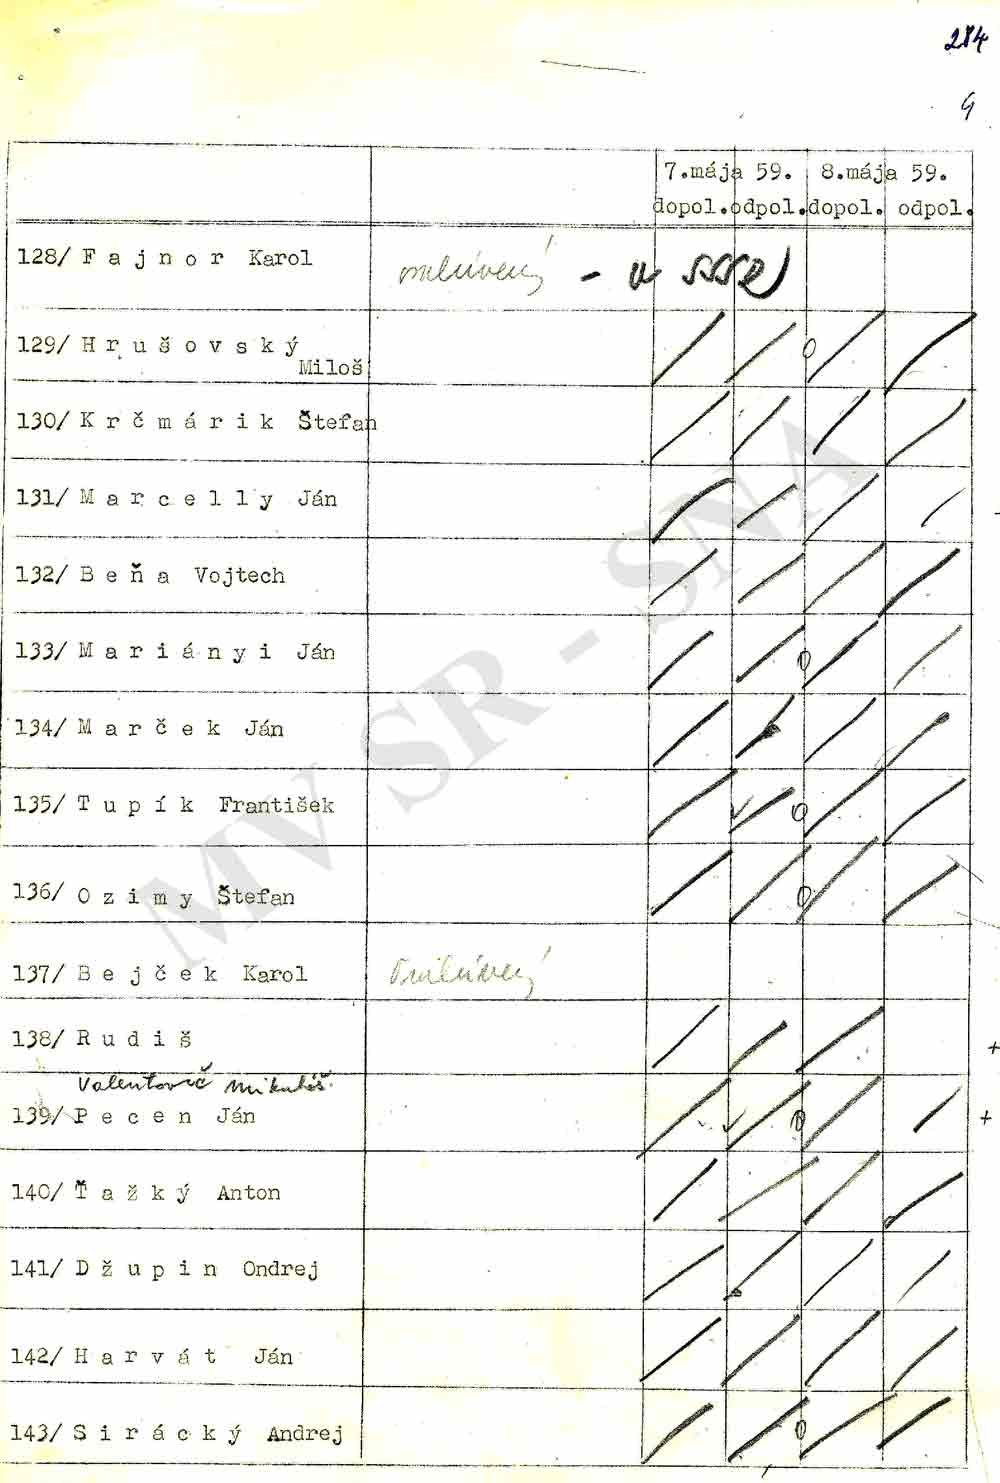 284
9
7.mája 59. 8.mája 59.
dopol. odpol. dopol. odpol.
128/ F a j n o r Karol omluvený - v SSSR
129/ H r u š o v s k ý
Miloš
130/ K r č m á r i k Štefan
131/ M a r c e l l y Ján
132/ B e ň a Vojtech
133/ M a r i á n y i Ján
134/ M a r č e k Ján
135/ T u p í k František
136/ O z i m y Štefan
137/ B e j č e k Karol Omluvený
138/ R u d i š
Valentovič Mikuláš
139/ P e c e n Ján
140/ Ť a ž k ý Anton
141/ D ž u p i n Ondrej
142/ H a r v á t Ján
143/ S i r á c k ý Andrej
MV SR - SNA